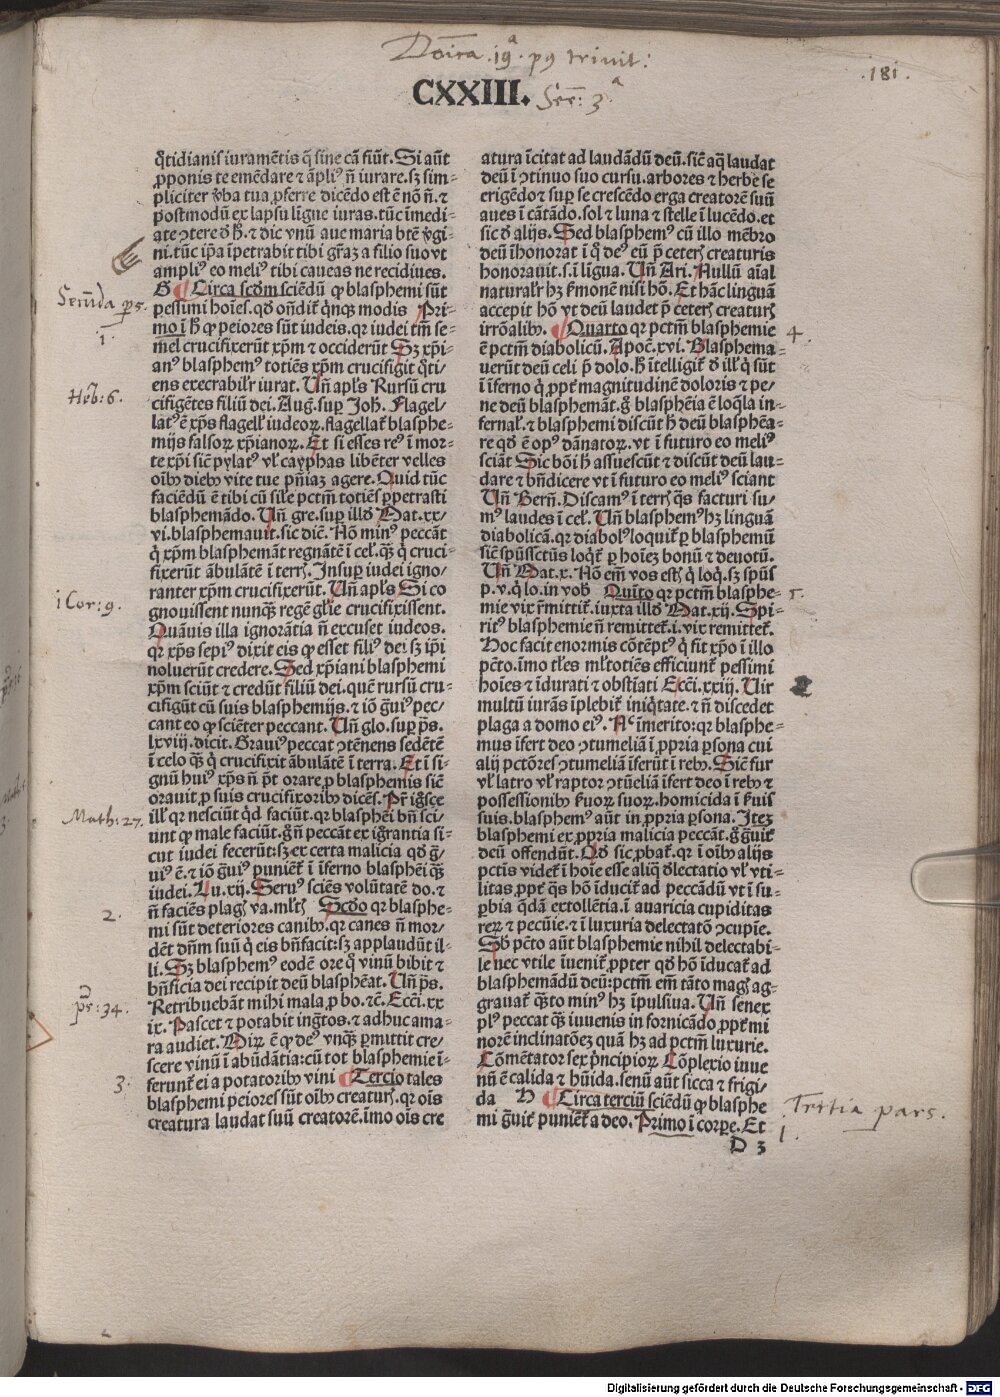 Doīca .19ª. p9 trinit:
.181.
CXXIII. Ser: 3ª
q̄tidianis iuramētis q̄ sine cā fiūt. Si aūt
ꝓponis te emēdare ⁊ āpliꝰ ñ iurare. sꝫ sim-
pliciter v̄ba tua ꝓferre dicēdo est ē nō ñ. ⁊
postmodū ex lapsu līgue iuras. tūc īmedi-
ate ↄtere d̄ h̄. ⁊ dic vnū aue maria btē v̄gi-
ni. tūc ip̄a īpetrabit tibi gr̄aꝫ a filio suo vt
ampliꝰ eo meliꝰ tibi caueas ne recidiues.
G Circa scd̄m sciēdū ꝙ blasphemi sūt
pessimi hoīes. qd̓ oñdiť q̄nqꝫ modis Pri-
mo ī h̄ ꝙ peiores sūt iudeis. qꝛ iudei tm̄ se-
mel crucifixerūt xp̄m ⁊ occiderūt Sꝫ xp̄i-
anꝰ blasphemꝰ totiēs xp̄m crucifigit q̄ti-
ens execrabilr̄ iurat. Uñ apl̓s Rursū cru
cifigētes filiū dei. Aug. suꝑ Joh̄. Flagel-
latꝰ ē xp̄s flagell̓ iudeoꝝ. flagellať blasphe-
mijs falsoꝝ xp̄ianoꝝ. Et si esses reꝰ ī mor-
te xp̄i sič pylatꝰ vl̓ cayphas libēter velles
oībꝫ diebꝫ vite tue pn̄iaꝫ agere. Quid tūc
faciēdū ē tibi cū sil̓e pctm̄ totiēs ꝑpetrasti
blasphemādo. Uñ gre. suꝑ illd̓ Mat. xx-
vi. blasphemauit. sic dič. Nō minꝰ peccāt
q̄ xp̄m blasphemāt regnātē ī cel̓. qꝫ̄ q̄ cruci-
fixerūt ābulātē ī terrꝭ. Insuꝑ iudei igno-
ranter xp̄m crucifixerūt. Uñ apl̓s Si co
gnouissent nunqꝫ̄ regē gl̓ie crucifixissent.
Quāuis illa ignorātia ñ excuset iudeos.
qꝛ xp̄s sepiꝰ dixit eis ꝙ esset filiꝰ dei sꝫ ip̄i
noluerūt credere. Sed xp̄iani blasphemi
xp̄m sciūt ⁊ credūt filiū dei. quē rursū cru-
cifigūt cū suis blasphemijs. ⁊ iō ḡuiꝰ pec-
cant eo ꝙ sciēter peccant. Uñ glo. suꝑ ps̄.
lxviij. dicit. Grauiꝰ peccat ↄtēnens sedētē
ī celo qꝫ̄ q̄ crucifixit ābulātē ī terra. Et ī si-
gnū huiꝰ xp̄s ñ pt̄ orare ꝓ blasphemis sič
orauit ꝓ suis crucifixoribꝫ dicēs. Pr̄ ig̓sce
ill̓ qꝛ nesciūt q̄d faciūt. qꝛ blasphēi bn̄ sci-
unt ꝙ male faciūt. gn̄ peccāt ex igr̄antia si-
cut iudei fecerūt: sꝫ ex certa malicia qd̓ g̓-
uiꝰ ē. ⁊ iō guiꝰ punienť ī īferno blasphēi qꝫ̄
iudei. Lu. xij. Seruꝰ sciēs volūtatē dō. ⁊
ñ faciēs plagꝭ va. ml̓tꝭ Scd̓o qꝛ blasphe-
mi sūt deteriores canibꝫ. qꝛ canes ñ mor-
dēt dn̄m suū q̄ eis bn̄facit: sꝫ applaudūt il-
li. Sꝫ blasphemꝰ eodē ore q̄ vinū bibit ⁊
bn̄ficia dei recipit deū blasphēat. Uñ ps̄.
Retribuebāt mihi mala ꝓ bo. ⁊č. Ecci. xx
ix. Pascet ⁊ potabit ing̓tos. ⁊ adhuc ama-
ra audiet. Mirꝝ ē ꝙ deꝰ vnqꝫ̄ ꝑmittit cre-
scere vinū ī abūdātia: cū tot blasphemie ī-
ferunť ei a potatoribꝫ vini Tercio tales
blasphemi peiores sūt oībꝫ creaturꝭ. qꝛ oīs
creatura laudat suū creatorē. īmo oīs cre
atura īcitat ad laudādū deū. sič aq̄ laudat
deū ī ↄtinuo suo cursu. arbores ⁊ herbe se
erigēdo ⁊ suꝑ se crescēdo erga creatorē suū
aues ī cātādo. sol ⁊ luna ⁊ stelle ī lucēdo. et
sic d̓ alijs. Sed blasphemꝰ cū illo mēbro
deū īhonorat ī q̄ deꝰ eū p̄ ceterꝭ creaturis
honorauit. s. ī līgua. Uñ Ari. Nullū aīal
naturalr̄ hꝫ ẜmonē nisi hō. Et hāc linguā
accepit hō vt deū laudet p̄ ceterꝭ creaturꝭ
irrōalibꝫ. Quarto qꝛ pctm̄ blasphemie
ē pctm̄ diabolicū. Apoč. xvi. Blasphema-
uerūt deū celi p̄ dolo. h̄ ītelligiť d̓ ill̓ q̄ sūt
ī īferno q̄ ꝓpť magnitudinē doloris ⁊ pe-
ne deū blasphemāt. g̓ blasphēia ē loq̄la in-
fernal̓. ⁊ blasphemi discūt h̄ deū blasphēa-
re qd̓ ē opꝰ dānatoꝝ. vt ī futuro eo meliꝰ
sciāt Sic bōi h̄ assuescūt ⁊ discūt deū lau-
dare ⁊ bn̄dicere vt ī futuro eo meliꝰ sciant
Uñ Bern̄. Discamꝰ ī terrꝭ q̄s facturi su-
mꝰ laudes ī cel̓. Uñ blasphemꝰ hꝫ linguā
diabolicā. qꝛ diabolꝰ loquiť ꝑ blasphemū
sič spūssctūs loq̄ť ꝑ hoīeꝫ bonū ⁊ deuotū.
Uñ Mat. x. Nō em̄ vos estꝭ q̄ loq̄. sꝫ spūs
p. v. q̄ lo. in vob̄ Quīto qꝛ pctm̄ blasphe-
mie vix r̄mittiť. iuxta illd̓ Mat. xij. Spi-
ritꝰ blasphemie ñ remitteť. i. vix remitteť.
Hoc facit enormis cōtēptꝰ q̄ fit xp̄o ī illo
pctō. īmo tl̓es ml̓totiēs efficiunť pessimi
hoīes ⁊ īdurati ⁊ obstīati Ecci. xxiij. Uir
multū iurās īplebiť iniq̄tate. ⁊ ñ discedet
plaga a domo eiꝰ. Nč īmerito: qꝛ blasphe-
mus īfert deo ↄtumeliā ī ꝓpria ꝑsona cui
alij pctōres ↄtumeliā īferūt ī rebꝫ. Sič fur
vl̓ latro vl̓ raptor ↄtūeliā īfert deo ī rebꝫ ⁊
possessionibꝫ ẜuoꝝ suoꝝ. homicida ī ẜuis
suis. blasphemꝰ aūt in ꝓpria ꝑsona. Iteꝫ
blasphemi ex ꝓpria malicia peccāt. g̓ g̓uiꝰ
deū offendūt. Qd̓ sic ꝓbať. qꝛ ī oībꝫ alijs
pctīs videť ī hoīe esse aliq̄ d̓lectatio vl̓ vti-
litas. ꝓpť qꝫ̄ hō īduciť ad peccādū vt ī su-
ꝑbia q̄dā extollētia. ī auaricia cupiditas
reꝝ ⁊ pecūie. ⁊ ī luxuria delectatō ↄcupīe.
Sꝫ pctō aūt blasphemie nihil delectabi-
le nec vtile īueniť. ꝓpter qd̓ hō īducať ad
blasphemādū deū: pctm̄ em̄ tāto magꝭ ag-
grauať qꝫ̄to minꝰ hꝫ īpulsiua. Uñ senex
plꝰ peccat qꝫ̄ iuuenis in fornicādo ꝓpť mi
norē inclinatōeꝫ quā hꝫ ad pctm̄ luxurie.
Cōmētator sex pn̄cipioꝝ. Cōplexio iuue
nū ē calida ⁊ hūida. senū aūt sicca ⁊ frigi-
da H Circa terciū sciēdū ꝙ blasphe
mi g̓uiť punienť a deo. Primo ī corpe. Et
D 3
Secūda ps.
1.
Heb: 6.
1 Cor: 9.
Math: 27.
2.
ps: 34.
3.
4.
5.
Tertia pars.
1.
Digitalisierung gefördert durch die Deutsche Forschungsgemeinschaft - DFG